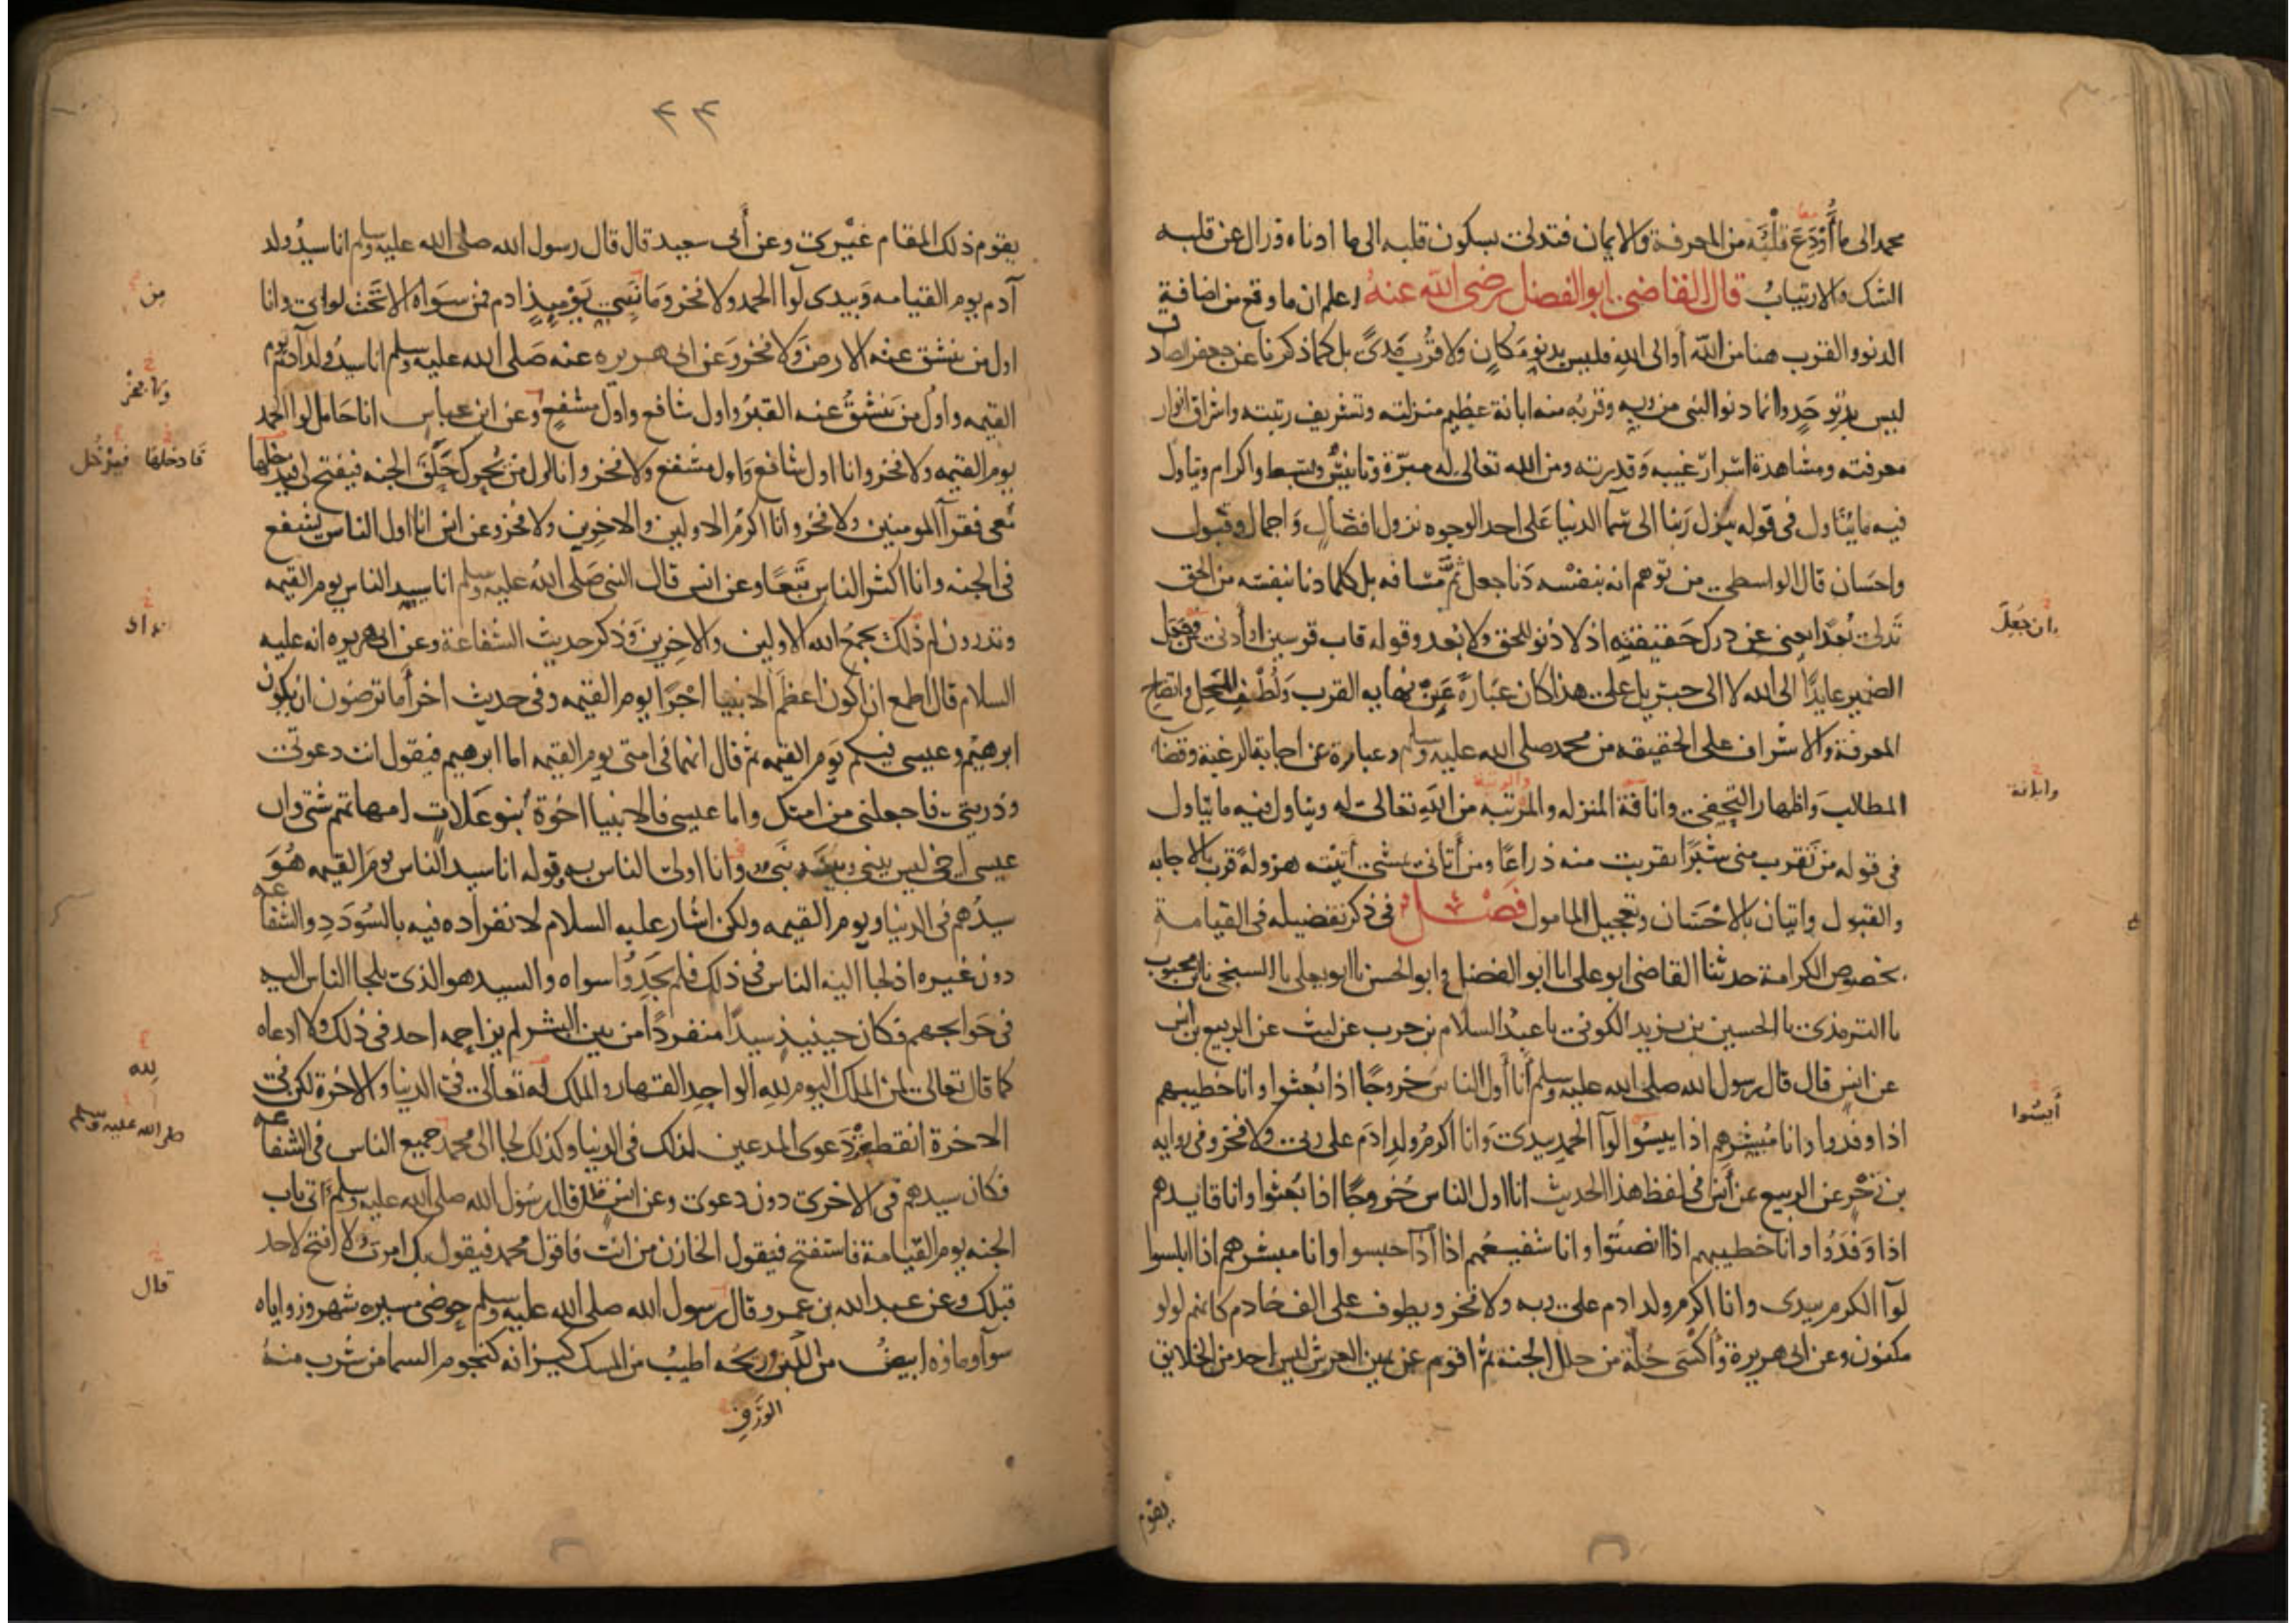 محمد الى ما أودع قلبه من المعرفة والايمان فتدلى بسكون قلبه الى ما ادناه وزال عن قلبه
الشك والارتياب قال القاضي ابوالفضل رضى الله عنه اعلم ان ما وقع من اضافة
الدنو والقرب هنا من الله أو الى الله فليس بدنو مكان ولا قرب مدى بل كما ذكرنا عن جعفر الصادق
ليس بدنو حد وانما دنو النبى من ربه وقربه منه ابانة عظيم منزلته وتشريف رتبته واشراق انوار
معرفته ومشاهدة اسرار غيبه وقدرته ومن الله تعالى له مبرة وتانيس وبسط واكرام ويتاول
فيه ما يتاول فى قوله ينزل ربنا الى سما الدنيا على احد الوجوه نزول افضال واجمال وقبول
واحسان قال الواسطي من توهم انه بنفسه دنا جعل ثم مسافه بل كلما دنا بنفسه من الحق
تدلى بعدا يعنى عن درك حقيقته اذ لا دنو للحق ولا بعد وقوله قاب قوسين او أدنى فمن جعل
الضمير عايدا الى الله لا الى جبريل على هذا كان عبارة عن نهايه القرب ولطف المحل واتضاح
المعرفة والاشراف على الحقيقه من محمد صلى الله عليه وسلم وعبارة عن اجابة الرغبة وقضا
المطالب واظهار التحفي وانافة المنزله والمرتبه من الله تعالى له ويتاول فيه ما يتاول
فى قوله من تقرب منى شبرا تقربت منه ذراعا ومن أتانى يمشى أتيته هرولة قرب بالاجابه
والقبول واتيان بالاحسان وتعجيل المامول فصل فى ذكر تفضيله فى القيامة
بخصوص الكرامة حدثنا القاضى ابو على انا ابو الفضل وابو الحسن نا ابو يعلى نا السنجى نا بن محبوب
نا الترمذى نا الحسين بن يزيد الكوفى نا عبد السلام بن حرب عن ليث عن الربيع بن انس
عن انس قال قال رسول الله صلى الله عليه وسلم أنا أول الناس خروجا اذا بعثوا وانا خطيبهم
اذا وفدوا وانا مبشرهم اذا ييسوا لوآ الحمد بيدى وانا اكرم ولد ادم على ربى ولا فخر وفى روايه
بن زحر عن الربيع عن أنس فى لفظ هذا الحديث انا اول الناس خروجا اذا بعثوا وانا قايدهم
اذا وفدوا وانا خطيبهم اذا انصتوا وانا شفيعهم اذا حبسوا وانا مبشرهم اذا ابلسوا
لوآ الكرم بيدى وانا اكرم ولد ادم على ربه ولا فخر ويطوف على الف خادم كانهم لولو
مكنون وعن ابى هريرة وأكسى حلة من حلل الجنة ثم اقوم عن يمين العرش ليس احد من الخلايق
والرتبة
ان جعل
وابانة
أيسوا
يقوم
٤٣
يقوم ذلك المقام غيرى وعن أبى سعيد قال قال رسول الله صلى الله عليه وسلم انا سيد ولد
آدم يوم القيامه وبيدى لوآ الحمد ولا فخر وما نبى يوميذ ادم فمن سواه الا تحت لواى وانا
اول من ينشق عنه الارض ولا فخر وعن ابى هريره عنه صلى الله عليه وسلم انا سيد ولد آدم يوم
القيمه واول من ينشق عنه القبر واول شافع واول مشفع وعن ابن عباس انا حامل لوا الحمد
يوم القيمه ولا فخر وانا اول شافع واول مشفع ولا فخر وانا اول من يحرك حلق الجنه فيفتح لى فيدخلها
معى فقرآ المومنين ولا فخر وأنا اكرم الاولين والاخرين ولا فخر وعن انس انا اول الناس يشفع
فى الجنه وانا اكثر الناس تبعا وعن انس قال النبى صلى الله عليه وسلم انا سيد الناس يوم القيمه
وتدرون لم ذلك يجمع الله الاولين والاخرين وذكر حديث الشفاعة وعن ابى هريره انه عليه
السلام قال اطمع ان اكون اعظم الانبيا اجرا يوم القيمه وفى حديث اخر أما ترضون ان يكون
ابرهيم وعيسى فيكم يوم القيمه ثم قال انهما فى امتى يوم القيمه اما ابرهيم فيقول انت دعوتى
وذريتى فاجعلنى من امتك واما عيسى فالانبيا اخوة بنو علات امهاتهم شتى وان
عيسى اخى ليس بينى وبينه نبى وانا اولى الناس به وقوله انا سيد الناس يوم القيمه هو
سيدهم فى الدنيا ويوم القيمه ولكن اشار عليه السلام لانفراده فيه بالسودد والشفاعه
دون غيره اذ لجا اليه الناس فى ذلك فلم يجدوا سواه والسيد هو الذى يلجا الناس اليه
فى حوايجهم فكان حينيذ سيدا منفردا من بين البشر لم يزاحمه احد فى ذلك ولا ادعاه
كما قال تعالى لمن الملك اليوم لله الواحد القهار والملك له تعالى فى الدنيا والاخرة لكن فى
الاخرة انقطع دعوى المدعين لذلك فى الدنيا وكذلك لجا الى محمد جميع الناس فى الشفاعه
فكان سيدهم فى الاخرى دون دعوى وعن انس قال رسول الله صلى الله عليه وسلم آتى باب
الجنه يوم القيامة فاستفتح فيقول الخازن من انت فاقول محمد فيقول بك امرت لا افتح لاحد
قبلك وعن عبد الله بن عمرو قال رسول الله صلى الله عليه وسلم حوضى مسيره شهر وزواياه
سوآ وماوه ابيض من اللبن وريحه اطيب من المسك كيزانه كنجوم السما من شرب منه
الورق
من
ولا فخر
فادخلها فيدخل
لله
صلى الله عليه وسلم
قال